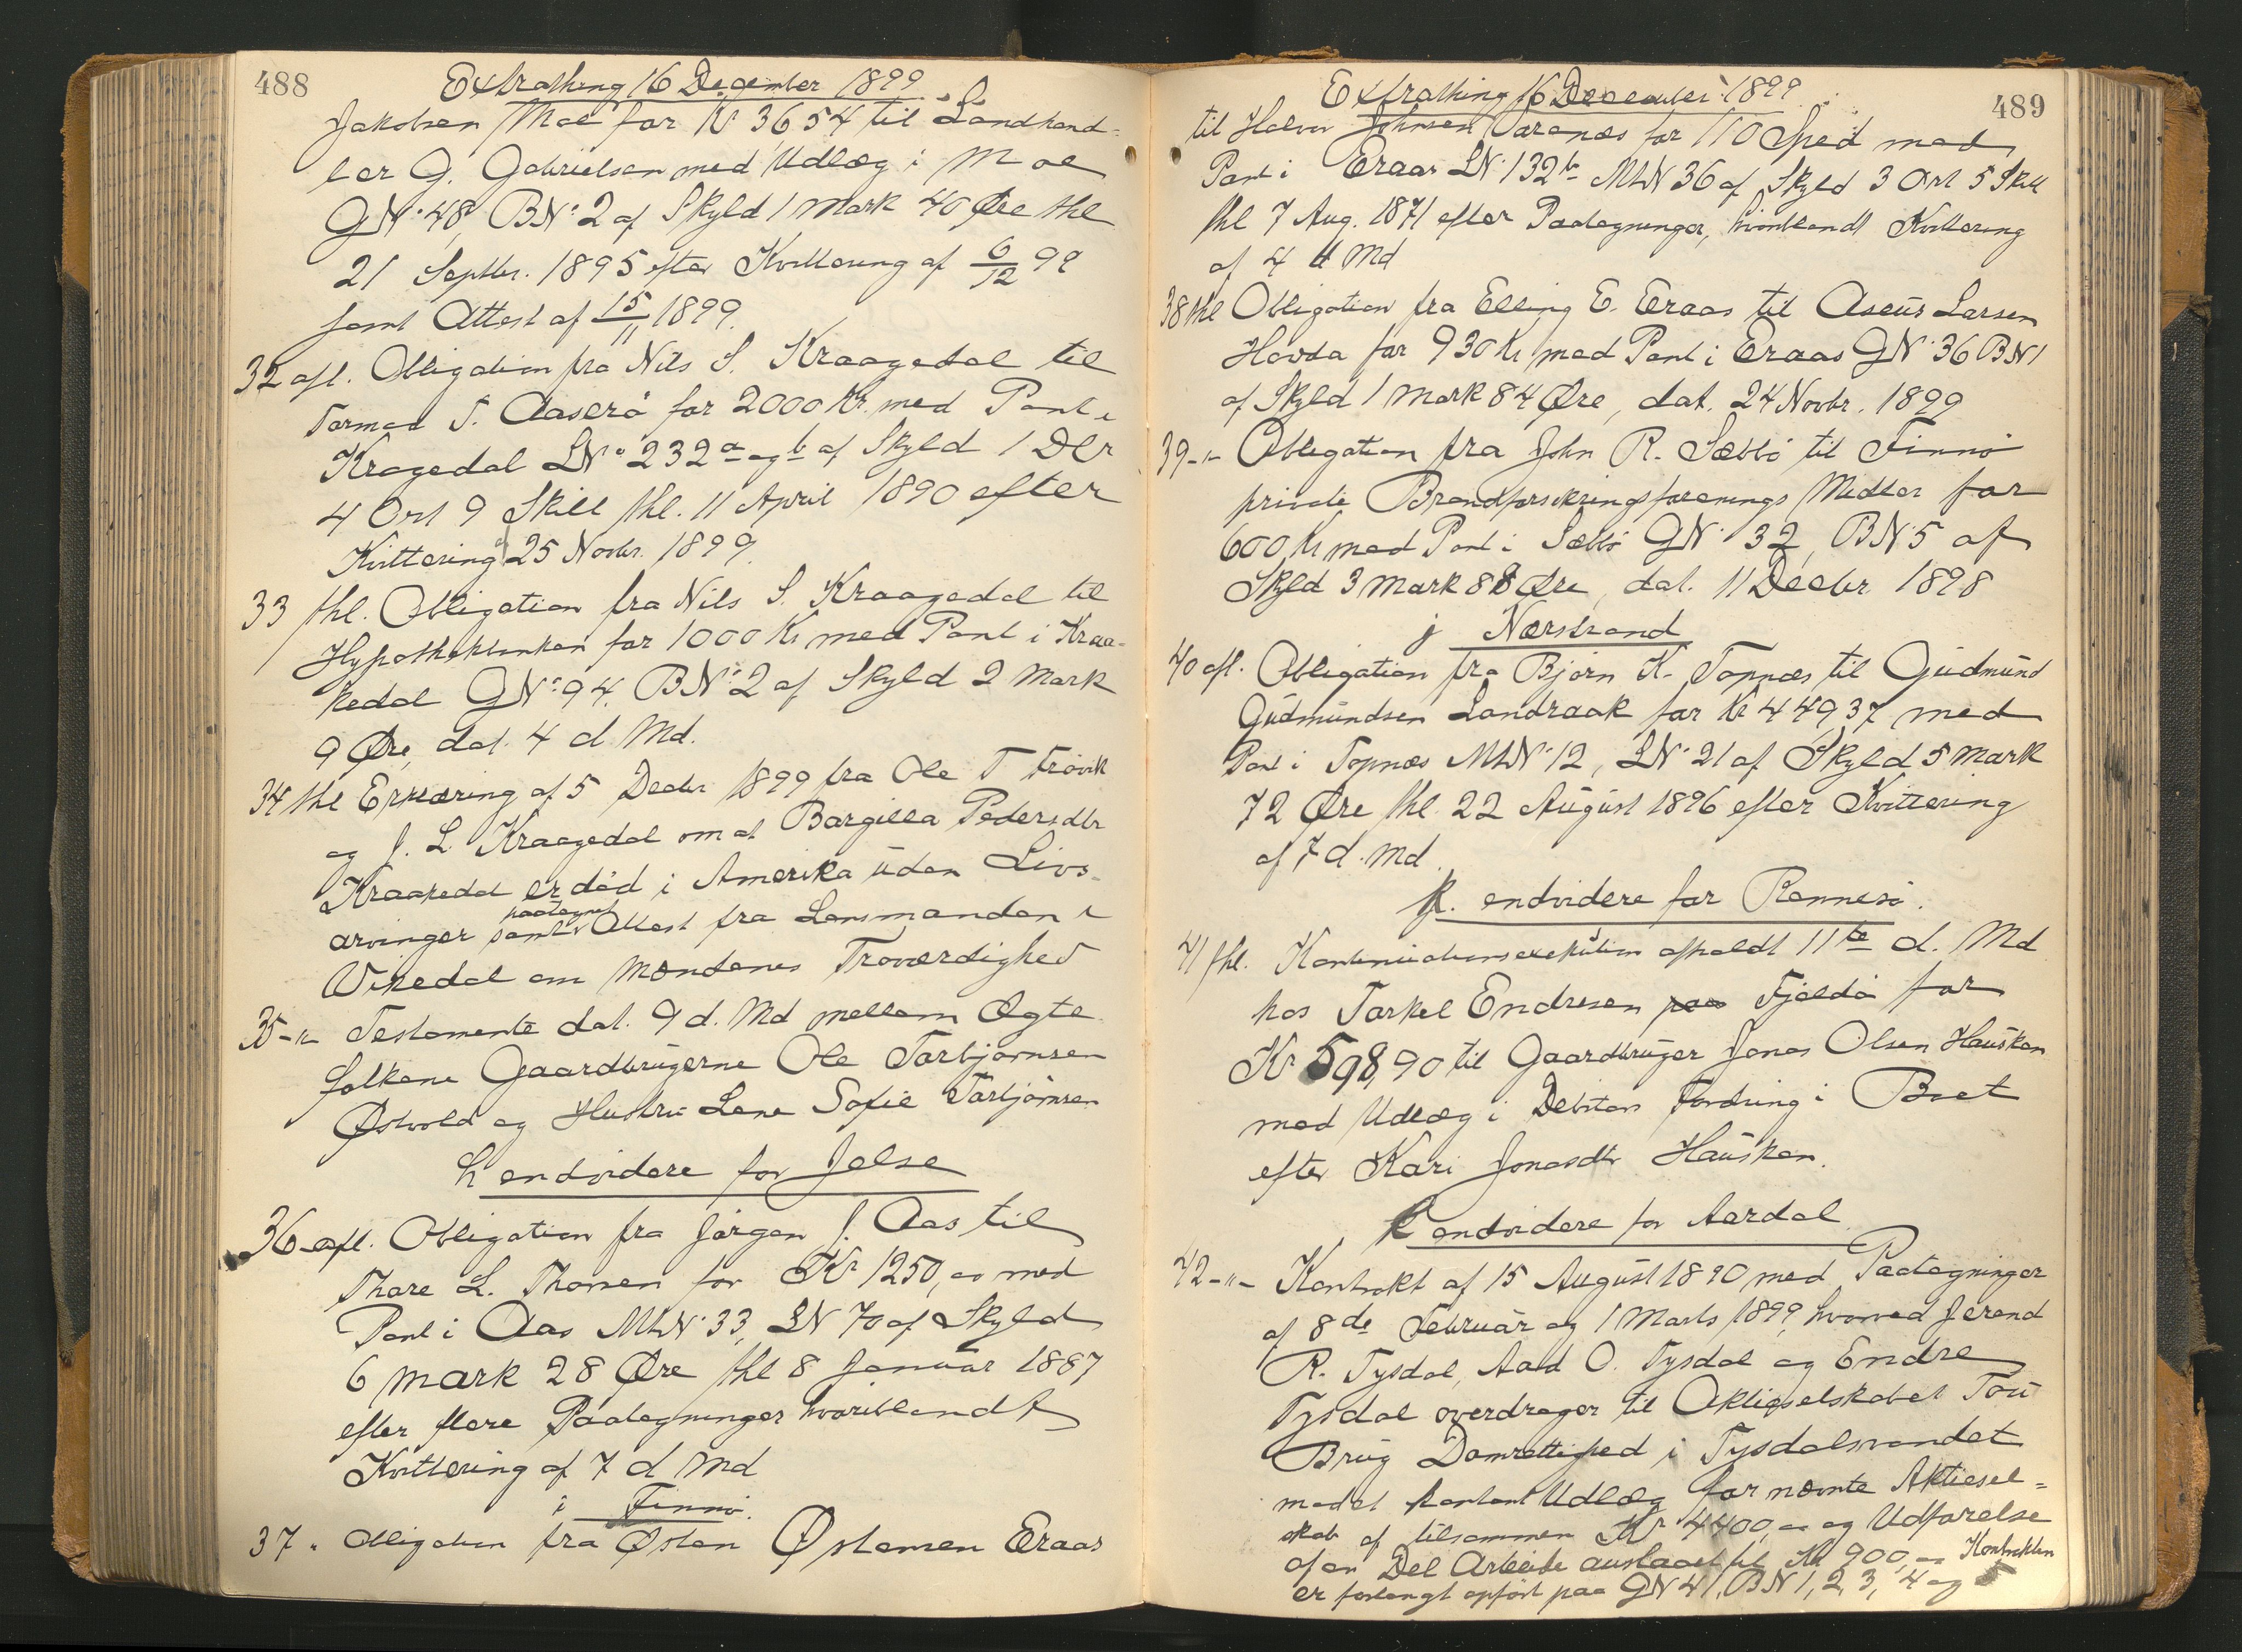 488
Extrathing 16 December 1899
Jakobsen Moe for Kr 36,54 til Landhand=
ler G. Gabrielsen med Udlæg i Moe
GN: 48, BN: 2 af Skyld 1 Mark 40 Øre thl
21 Septbr. 1895 efter Kvittering af 6/12 99
samt Attest af 15/11 1899.
32 afl. Obligation fra Nils S. Kraagedal til
Tormod T. Aaserö for 2000 Kr. med Pant i
Kragedal LN: 232 a og b af Skyld 1 Dlr
4 Ort 9 Skill thl. 11 April 1890 efter
Kvittering af 25 Novbr. 1899
33 thl. Obligation fra Nils S. Kraagedal til
Hypothekbanken for 1000 Kr med Pant i Kraa-
kedal GN: 94, BN: 2 af Skyld 2 Mark
9 Øre, dat. 4 d. Md.
34 thl Erklæring af 5 Decbr 1899 fra Ole T Trövik
og J. L. Kraagedal om at Bargilla Pedersdtr
Kraakedal er död i Amerika uden Livs-
arvinger samt paategnet Attest fra Lensmanden i
Vikedal om Mændenes Troværdighed
35 -"- Testamente dat. 9 d. Md mellem Ægte
folkene Gaardbrugerne Ole Torbjørnsen
Østvold og Hustru Lene Sofie Torbjörnsen
h endvidere for Jelse
36 afl. Obligation fra Jörgen J. Aas til
Thore L. Thorsen for Kr 1250,00 med
Pant i Aas MtN: 33, LN 70 af Skyld
6 Mark 28 Øre thl 8 Januar 1887
efter flere Paategninger hvoriblandt
Kvittering af 7 d Md
i Finnö.
37 " Obligation fra Østen Østensen Eraas
Extrathing 16 December 1899
489
til Halvor Johnsen for 110 Spd med
Pant i Eraas LN: 132 b MtN 36 af Skyld 3 Ort 5 Skill
thl 7 Aug. 1871 efter Paategninger, hvoriblandt Kvittering
af 4 d Md
38 thl Obligation fra Elling E. Eraas til Aseus Larsen
Hovda for 930 Kr med Pant i Eraas GN: 36 BN 1
af Skyld 1 Mark 84 Øre, dat. 24 Novbr. 1899
39 -"- Obligation fra John R. Sæbbö til Finnö
private Brandforsikringsforenings Midler for
600 Kr med Pant i Sæbbö GN: 32, BN 5 af
Skyld 3 Mark 88 Øre, dat. 11 Decbr 1898
j Nærstrand
40 afl. Obligation fra Björn K. Topnæs til Gudmund
Gudmundsen Landraak for Kr 449,37 med
Pant i Topnæs MtN: 12, LN: 21 af Skyld 5 Mark
72 Øre thl. 22 August 1896 efter Kvittering
af 7 d. Md.
k. endvidere for Rennesö.
41 thl. Kontinuationsexekution afholdt 11te d. Md
hos Torkel Endresen paa Fjeldö for
Kr 598,90 til Gaardbruger Jonas Olsen Hausken
med Udlæg i Debitors Fordring i Boet
efter Kari Jonasdtr Hausken.
l endvidere for Aardal
42 -"- Kontrakt af 15 August 1890 med Paategninger
af 8de Februar og 1 Marts 1899, hvorved Jerand
R. Tysdal, Aad O. Tysdal og Endre
Tysdal overdrager til Aktieselskabet Tou
Brug Damrettighed i Tysdalsvandet
mod et kontant Udlæg for nævnte Aktiesel=
skab af tilsammen Kr 4400,00 og Udførelse
af en Del Arbeide anslaaet til Kr 900,00 Kontrakten
er forlangt opført paa GN 41, BN 1, 2, 3, 4 og 5